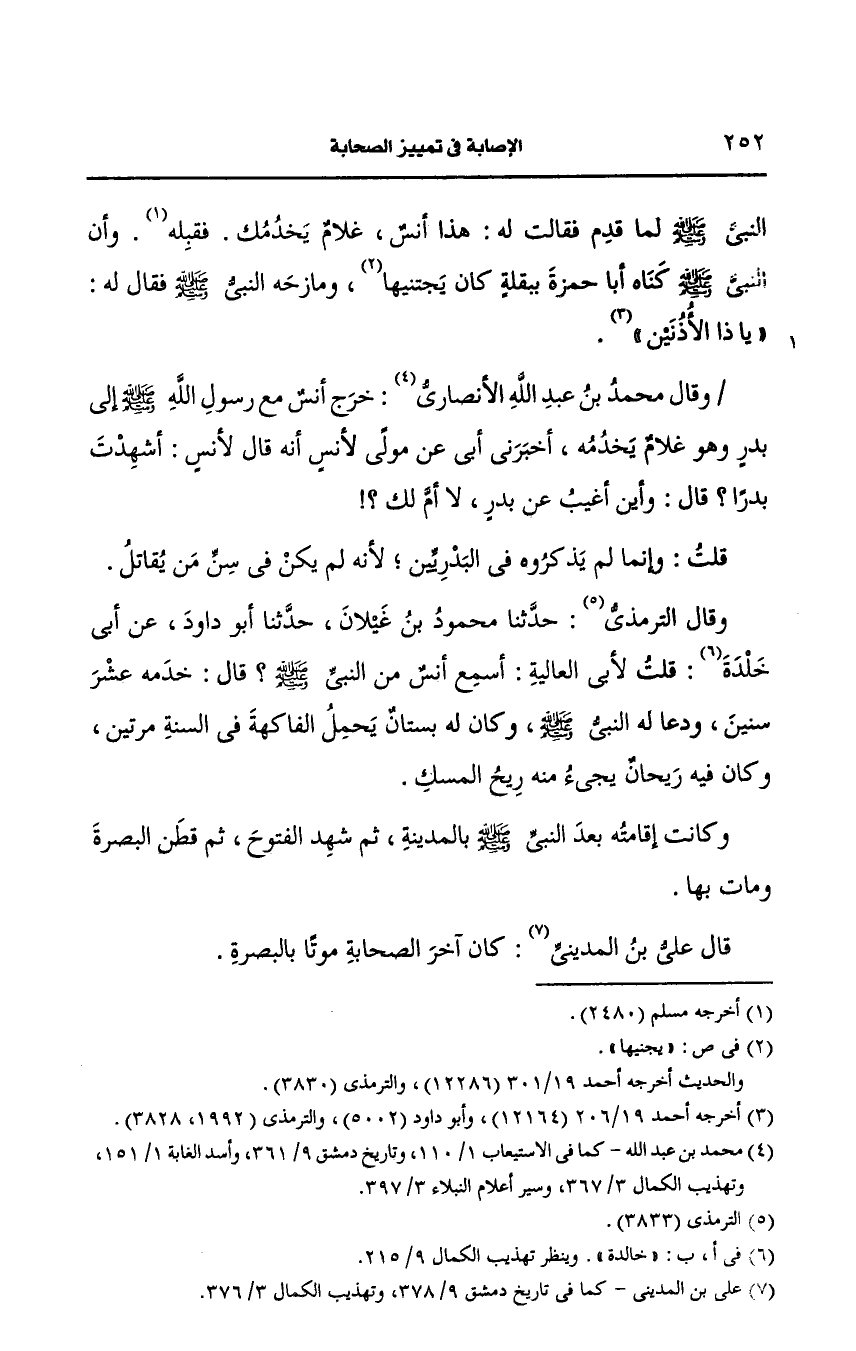 ٢٥٢ الإصابة فى تمييز الصحابة
النبىَّ ﷺ لما قدِم فقالت له : هذا أنسٌ ، غلامٌ يَخدُمُك . فقبِله(١) . وأن
النبىَّ ﷺ كَنَاه أبا حمزةَ ببقلةٍ كان يَجتنيها(٢) ، ومازحَه النبىُّ ﷺ فقال له :
« يا ذا الأُذُنَيْن »(٣) . ١
/ وقال محمدُ بنُ عبدِ اللَّهِ الأنصارىُّ(٤) : خرَج أنسٌ مع رسولِ اللَّهِ ﷺ إلى
بدرٍ وهو غلامٌ يَخدُمُه ، أخبَرَنى أبى عن مولًى لأنسٍ أنه قال لأنسٍ : أشهِدْتَ
بدرًا ؟ قال : وأين أغيبُ عن بدرٍ ، لا أمَّ لك ؟!
قلتُ : وإنما لم يَذكرُوه فى البَدْرِيِّين ؛ لأنه لم يكنْ فى سِنِّ مَن يُقاتلُ .
وقال الترمذىُّ(٥) : حدَّثنا محمودُ بنُ غَيْلانَ ، حدَّثنا أبو داودَ ، عن أبى
خَلْدَةَ(٦) : قلتُ لأبى العاليةِ : أسمِع أنسٌ من النبىِّ ﷺ ؟ قال : خدَمه عشْرَ
سنينَ ، ودعا له النبىُّ ﷺ ، وكان له بستانٌ يَحمِلُ الفاكهةَ فى السنةِ مرتين ،
وكان فيه رَيحانٌ يجىءُ منه رِيحُ المسكِ .
وكانت إقامتُه بعدَ النبىِّ ﷺ بالمدينةِ ، ثم شهِد الفتوحَ ، ثم قطَن البصرةَ
ومات بها .
قال علىُّ بنُ المدينىِّ(٧) : كان آخرَ الصحابةِ موتًا بالبصرةِ .
(١) أخرجه مسلم (٢٤٨٠) .
(٢) فى ص : « يجنيها » .
والحديث أخرجه أحمد ٣٠١/١٩ (١٢٢٨٦) ، والترمذى (٣٨٣٠) .
(٣) أخرجه أحمد ٢٠٦/١٩ (١٢١٦٤) ، وأبو داود (٥٠٠٢) ، والترمذى (١٩٩٢، ٣٨٢٨) .
(٤) محمد بن عبد الله - كما فى الاستيعاب ١/ ١١٠، وتاريخ دمشق ٩/ ٣٦١، وأسد الغابة ١/ ١٥١،
وتهذيب الكمال ٣/ ٣٦٧، وسير أعلام النبلاء ٣/ ٣٩٧.
(٥) الترمذى (٣٨٣٣) .
(٦) فى أ ، ب : « خالدة » . وينظر تهذيب الكمال ٩/ ٢١٥.
(٧) على بن المدينى - كما فى تاريخ دمشق ٩/ ٣٧٨، وتهذيب الكمال ٣/ ٣٧٦.